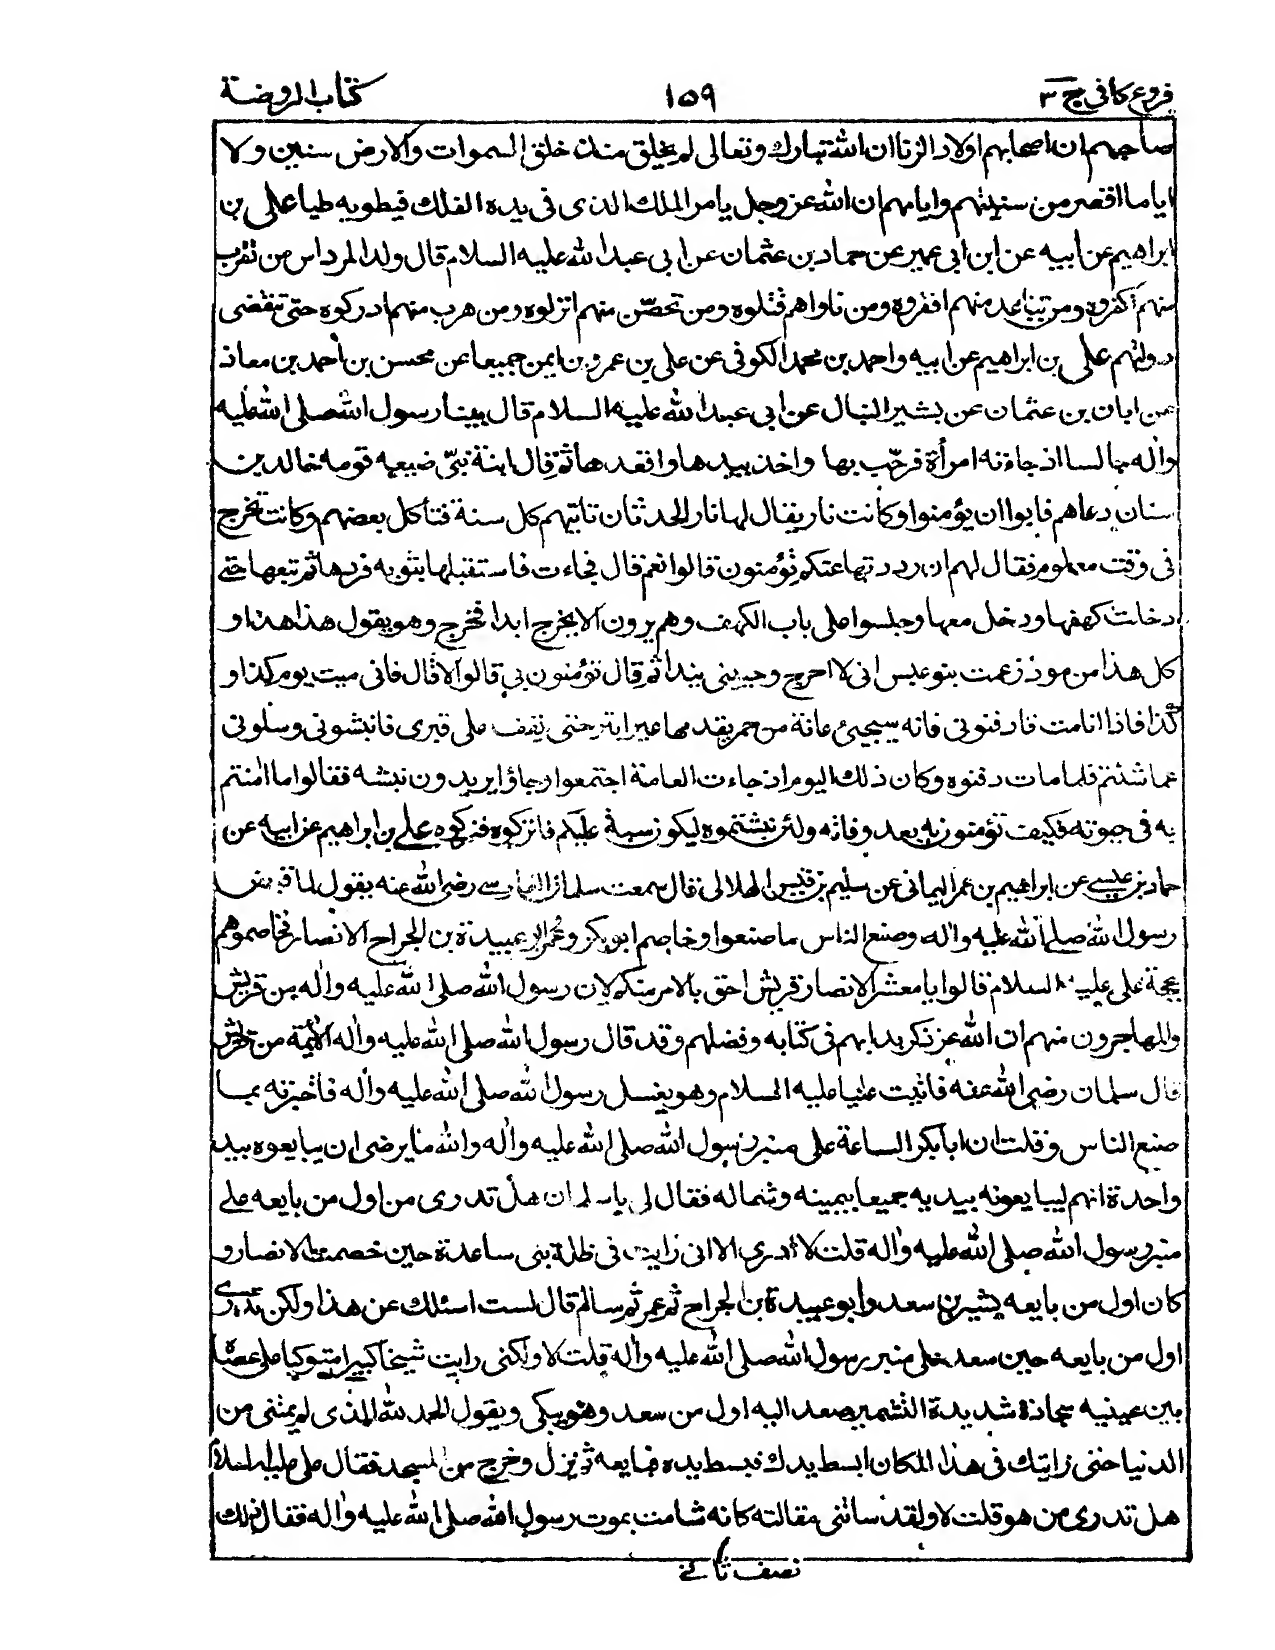 فروع كافى ج ٣ ١٥٩ كتاب الروضة
صاحبهم ان اصحابهم اولاد الزنا ان الله تبارك وتعالى لم يخلق منذ خلق السموات والارض سنين ولا
اياما اقصر من سنينهم وايامهم ان الله عز وجل يامر الملك الذى فى يده الفلك فيطويه طيا على بن
ابراهيم عن أبيه عن ابن ابى عمير عن حماد بن عثمان عن ابى عبد الله عليه السلام قال ولد المرداس من تقرب
منهم اكفروه ومن تباعد منهم افقروه ومن ناواهم قتلوه ومن تحصّن منهم انزلوه ومن هرب منهم ادركوه حتى تنقضى
دولتهم على بن ابراهيم عن ابيه واحمد بن محمد الكوفى عن على بن عمرو بن ايمن جميعا عن محسن بن أحمد بن معاذ
عن ابان بن عثمان عن بشير النبال عن ابى عبد الله عليه السلام قال بينا رسول الله صلى الله عليه
واٰله جالسا اذ جاءته امرأة فرحّب بها واخذ بيدها واقعدها ثم قال ابنة نبىّ ضيعه قومه خالد بن
سنان دعاهم فابوا ان يؤمنوا وكانت نار يقال لها نار الحدثان تاتيهم كل سنة فتأكل بعضهم وكانت تخرج
فى وقت معلوم فقال لهم ان رددتها عنكم تؤمنون قالوا نعم قال فجاءت فاستقبلها بثوبه فردها ثم تبعها حتى
دخلت كهفها ودخل معها وجلسوا على باب الكهف وهم يرون الا يخرج ابدا فخرج وهو يقول هذا هذا و
كل هذا من موذ زعمت بنو عبس انى لا اخرج وجبينى يندا ثم قال تؤمنون بى قالوا لا قال فانى ميت يوم كذا و
كذا فاذا انا مت فادفنونى فانه سيجيئ عانة من حمر يقدمها عير ابتر حتى يقف على قبرى فانبشونى وسلونى
عما شئتم فلما مات دفنوه وكان ذلك اليوم اذ جاءت العانة اجتمعوا وجاؤا يريدون نبشه فقالوا ما اٰمنتم
به فى حيوته فكيف تؤمنون به بعد وفاته ولئن نبشتموه ليكون سبة عليكم فاتركوه فتركوه على بن ابراهيم عن ابيه عن
حماد بن عيسى عن ابراهيم بن عمر اليمانى عن سليم بن قيس الهلالى قال سمعت سلمان الفارسى رضى الله عنه يقول لما قبض
رسول الله صلى الله عليه واٰله وصنع الناس ما صنعوا وخاصم ابو بكر وعمر وابو عبيدة بن الجراح الانصار فخاصموهم
بحجة على عليه السلام قالوا يا معشر الانصار قريش احق بالامر منكم لان رسول الله صلى الله عليه واٰله من قريش
والمهاجرون منهم ان الله عز ذكره بدا بهم فى كتابه وفضلهم وقد قال رسول الله صلى الله عليه واٰله الائمة من قريش
قال سلمان رضى الله عنه فاتيت عليا عليه السلام وهو يغسل رسول الله صلى الله عليه واٰله فاخبرته بما
صنع الناس وقلت ان ابا بكر الساعة على منبر رسول الله صلى الله عليه واٰله والله ما يرضى ان يبايعوه بيد
واحدة انهم ليبايعونه بيديه جميعا بيمينه وشماله فقال لى يا سلمان هل تدرى من اول من بايعه على
منبر رسول الله صلى الله عليه واٰله قلت لا ادرى الا انى رايت فى ظلة بنى ساعدة حين خصمت الانصار و
كان اول من بايعه بشير بن سعد وابو عبيدة بن الجراح ثم عمر ثم سالم قال لست اسئلك عن هذا ولكن تدرى
اول من بايعه حين صعد على منبر رسول الله صلى الله عليه واٰله قلت لا ولكنى رايت شيخا كبيرا متوكيا على عصاه
بين عينيه سجادة شديدة التشمير صعد اليه اول من صعد وهو يبكى ويقول الحمد لله الذى لم يمتنى من
الدنيا حتى رايتك فى هذا المكان ابسط يدك فبسط يده فبايعه ثم نزل وخرج من المسجد فقال على عليه السلام
هل تدرى من هو قلت لا ولقد سائتنى مقالته كانه شامت بموت رسول الله صلى الله عليه واٰله فقال ذلك
نصف ثانى